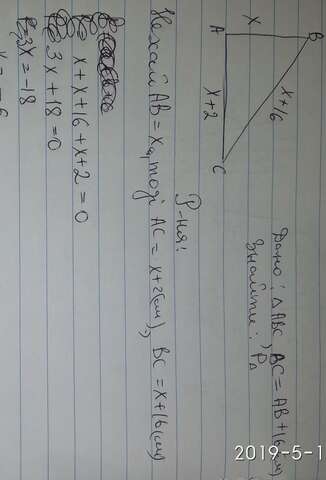 A
x
B
x+2
x+16
C
Дано: △ABC, BC = AB+16(см)
Знайти: P△
Р-ня:
Нехай AB = x, тоді AC = x+2(см), BC = x+16(см)
x + x+16 + x+2 = 0
3x + 18 = 0
3x = -18
2019-5-1